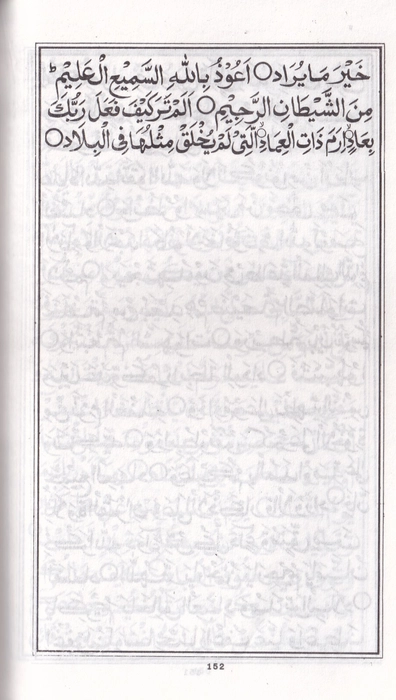 خَيْرَ مَا يُرَادُ○ اَعُوْذُ بِاللّٰهِ السَّمِيْعِ الْعَلِيْمِ ؕ
مِنَ الشَّيْطَانِ الرَّجِيْمِ○ اَلَمْ تَرَ كَيْفَ فَعَلَ رَبُّكَ
بِعَادٍ اِرَمَ ذَاتِ الْعِمَادِ الَّتِيْ لَمْ يُخْلَقْ مِثْلُهَا فِى الْبِلَادِ○
152